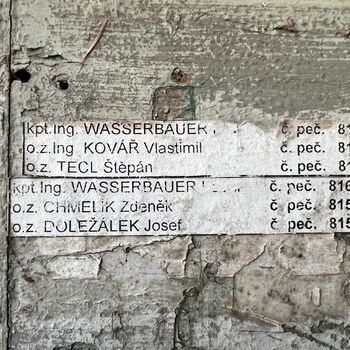 kpt.Ing. WASSERBAUER č. peč. 81
o.z.Ing. KOVÁŘ Vlastimil č. peč. 81
o.z. TECL Štěpán č. peč. 81
kpt.Ing. WASSERBAUER č. peč. 816
o.z. CHMELÍK Zdeněk č. peč. 815
o.z. DOLEŽÁLEK Josef č. peč. 815